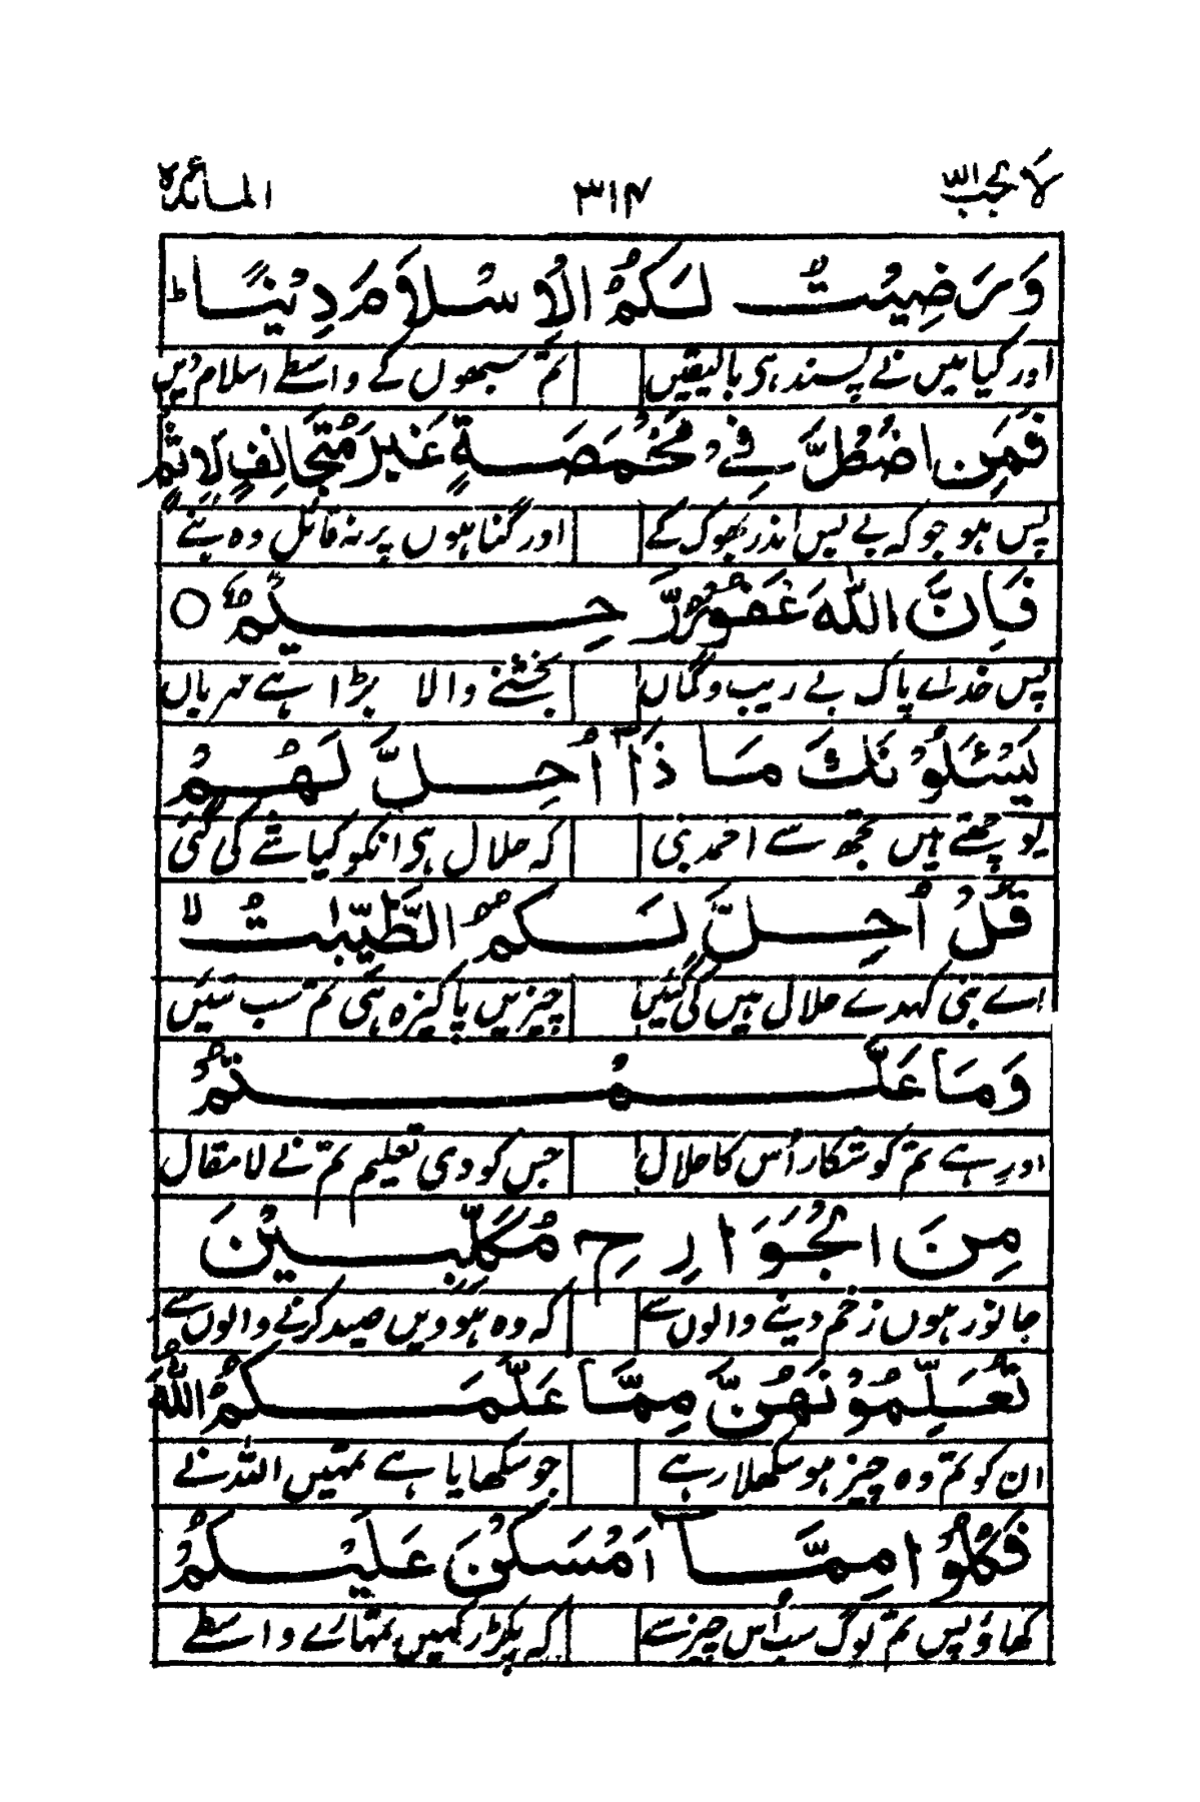 لا یحب اللہ ۳۱۴ المائدۃ
وَرَضِيْتُ لَكُمُ الْاِسْلَامَ دِيْنًا ؕ
اور کیا میں نے پسند ہی بالیقیں تم سبھوں کے واسطے اسلام دیں
فَمَنِ اضْطُرَّ فِیْ مَخْمَصَةٍ غَيْرَ مُتَجَانِفٍ لِّاِثْمٍ
پس ہو جو کہ بے بس اندر بھوک کے اور گناہوں پر نہ قائل وہ بنے
فَاِنَّ اللّٰهَ غَفُوْرٌ رَّحِيْمٌ ○
پس خدائے پاک بے ریب و گماں بخشنے والا بڑا ہے مہرباں
يَسْـَٔلُوْنَكَ مَا ذَاۤ اُحِلَّ لَهُمْ
پوچھتے ہیں تجھ سے احمد نبی کہ حلال ہی انکو کیا شے کی گئی
قُلْ اُحِلَّ لَكُمُ الطَّيِّبٰتُ ۙ
اے نبی کہدے حلال ہیں کی گئیں چیزیں پاکیزہ ہی تم سب تئیں
وَمَا عَلَّمْتُمْ
اور ہے تم کو شکار اُس کا حلال جس کو دی تعلیم تم نے لا مقال
مِنَ الْجَوَارِحِ مُكَلِّبِيْنَ
جانور ہوں زخم دینے والوں سے کہ وہ ہوویں صید کرنے والوں سے
تُعَلِّمُوْنَهُنَّ مِمَّا عَلَّمَكُمُ اللّٰهُ
ان کو تم وہ چیز ہو سکھلا رہے جو سکھایا ہے تمہیں اللہ نے
فَكُلُوْا مِمَّاۤ اَمْسَكْنَ عَلَيْكُمْ
کھاؤ پس تم لوگ سب اُس چیز سے کہ پکڑ رکھیں تمہارے واسطے